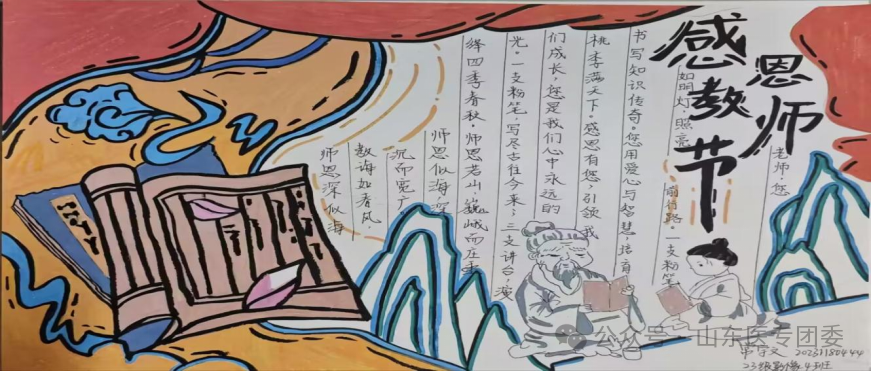 感恩
教师
节
老师,您
如明灯,照亮
路。一支粉笔
书写知识传奇。您用爱心与智慧,培育
桃李满天下。感恩有您,引领我
们成长,您是我们心中永远的
光。一支粉笔,写尽古往今来;三支讲台,演
绎四季春秋。师恩若山,巍峨而庄重
师恩似海,深
沉而宽广。
教诲如春风,
师恩深似海
公众号 山东医专团委
20231180444
23级影像4班